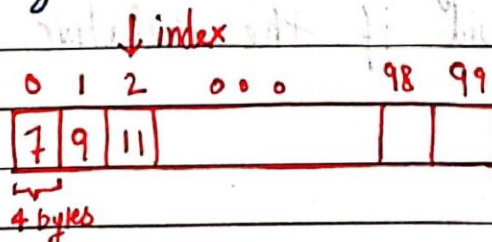 ↓ index
0 1 2 ... 98 99
7 9 11
4 bytes